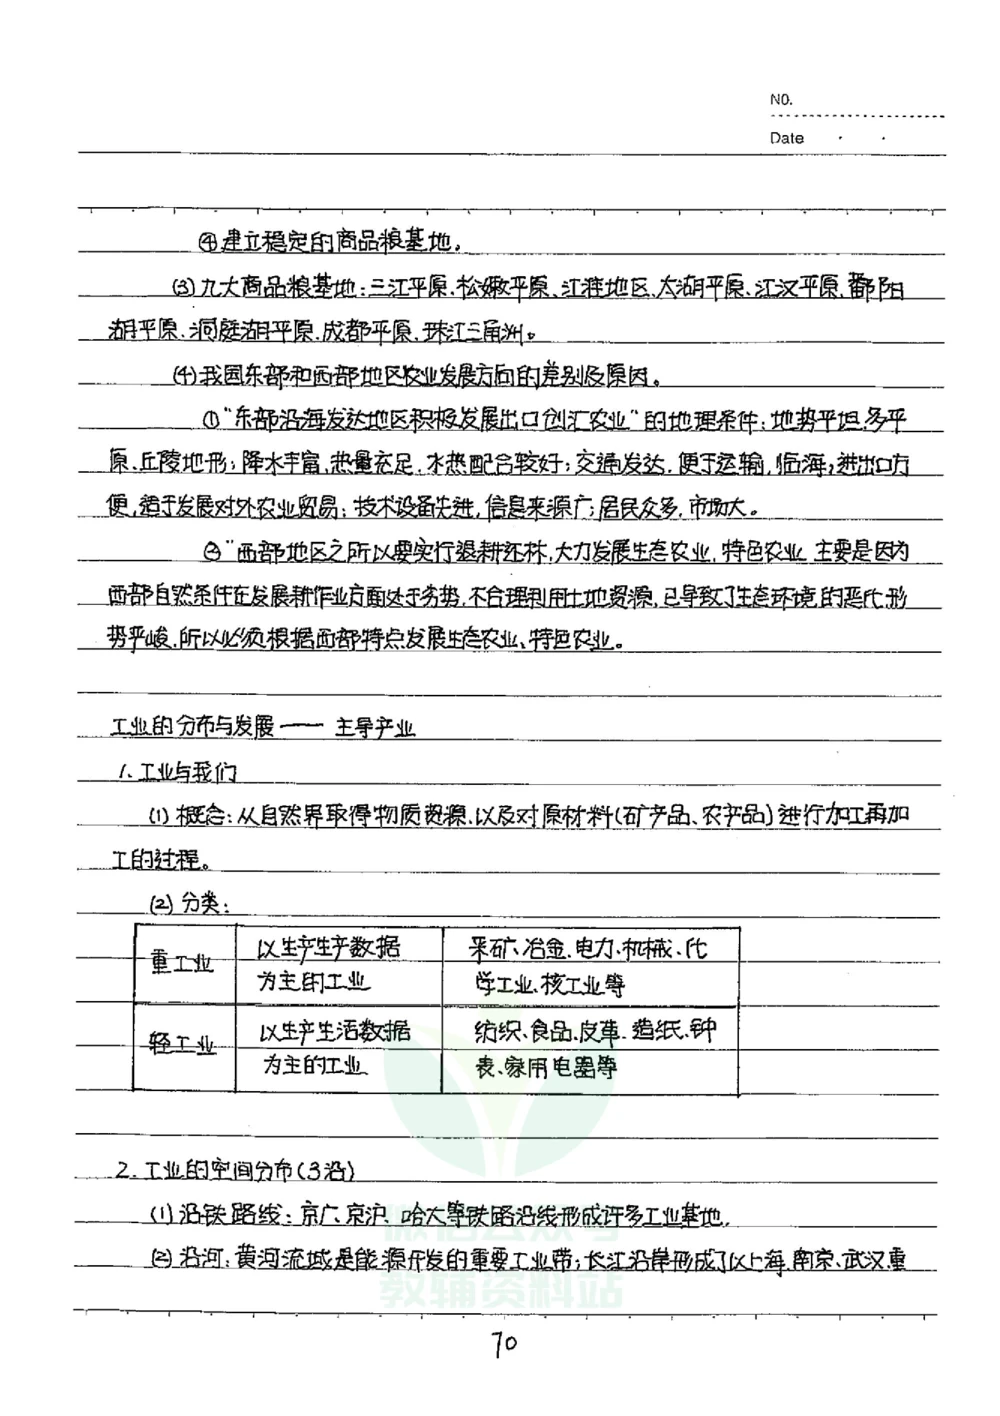 NO.
Date
④建立稳定的商品粮基地。
(3)九大商品粮基地:三江平原、松嫩平原、江淮地区、太湖平原、江汉平原、鄱阳
湖平原、洞庭湖平原、成都平原、珠江三角洲。
(4)我国东部和西部地区农业发展方向的差别及原因。
①“东部沿海发达地区积极发展出口创汇农业”的地理条件:地势平坦,多平
原、丘陵地形;降水丰富,热量充足,水热配合较好;交通发达,便于运输,临海,进出口方
便,适于发展对外农业贸易;技术设备先进,信息来源广;居民众多,市场大。
②“西部地区之所以要实行退耕还林,大力发展生态农业,特色农业 主要是因为
西部自然条件在发展耕作业方面处于劣势,不合理利用土地资源,已导致了生态环境的恶化形
势严峻,所以必须根据西部特点发展生态农业、特色农业。
工业的分布与发展——主导产业
1.工业与我们
(1)概念:从自然界取得物质资源,以及对原材料(矿产品、农产品)进行加工再加
工的过程。
(2)分类:
重工业 以生产生产数据 采矿、冶金、电力、机械、化
为主的工业 学工业、核工业等
轻工业 以生产生活数据 纺织、食品、皮革、造纸、钟
为主的工业 表、家用电器等
2.工业的空间分布(3沿)
(1)沿铁路线:京广、京沪、哈大等铁路沿线形成许多工业基地。
(2)沿河:黄河流域是能源开发的重要工业带;长江沿岸形成了以上海、南京、武汉、重
微信公众号
教辅资料站
70